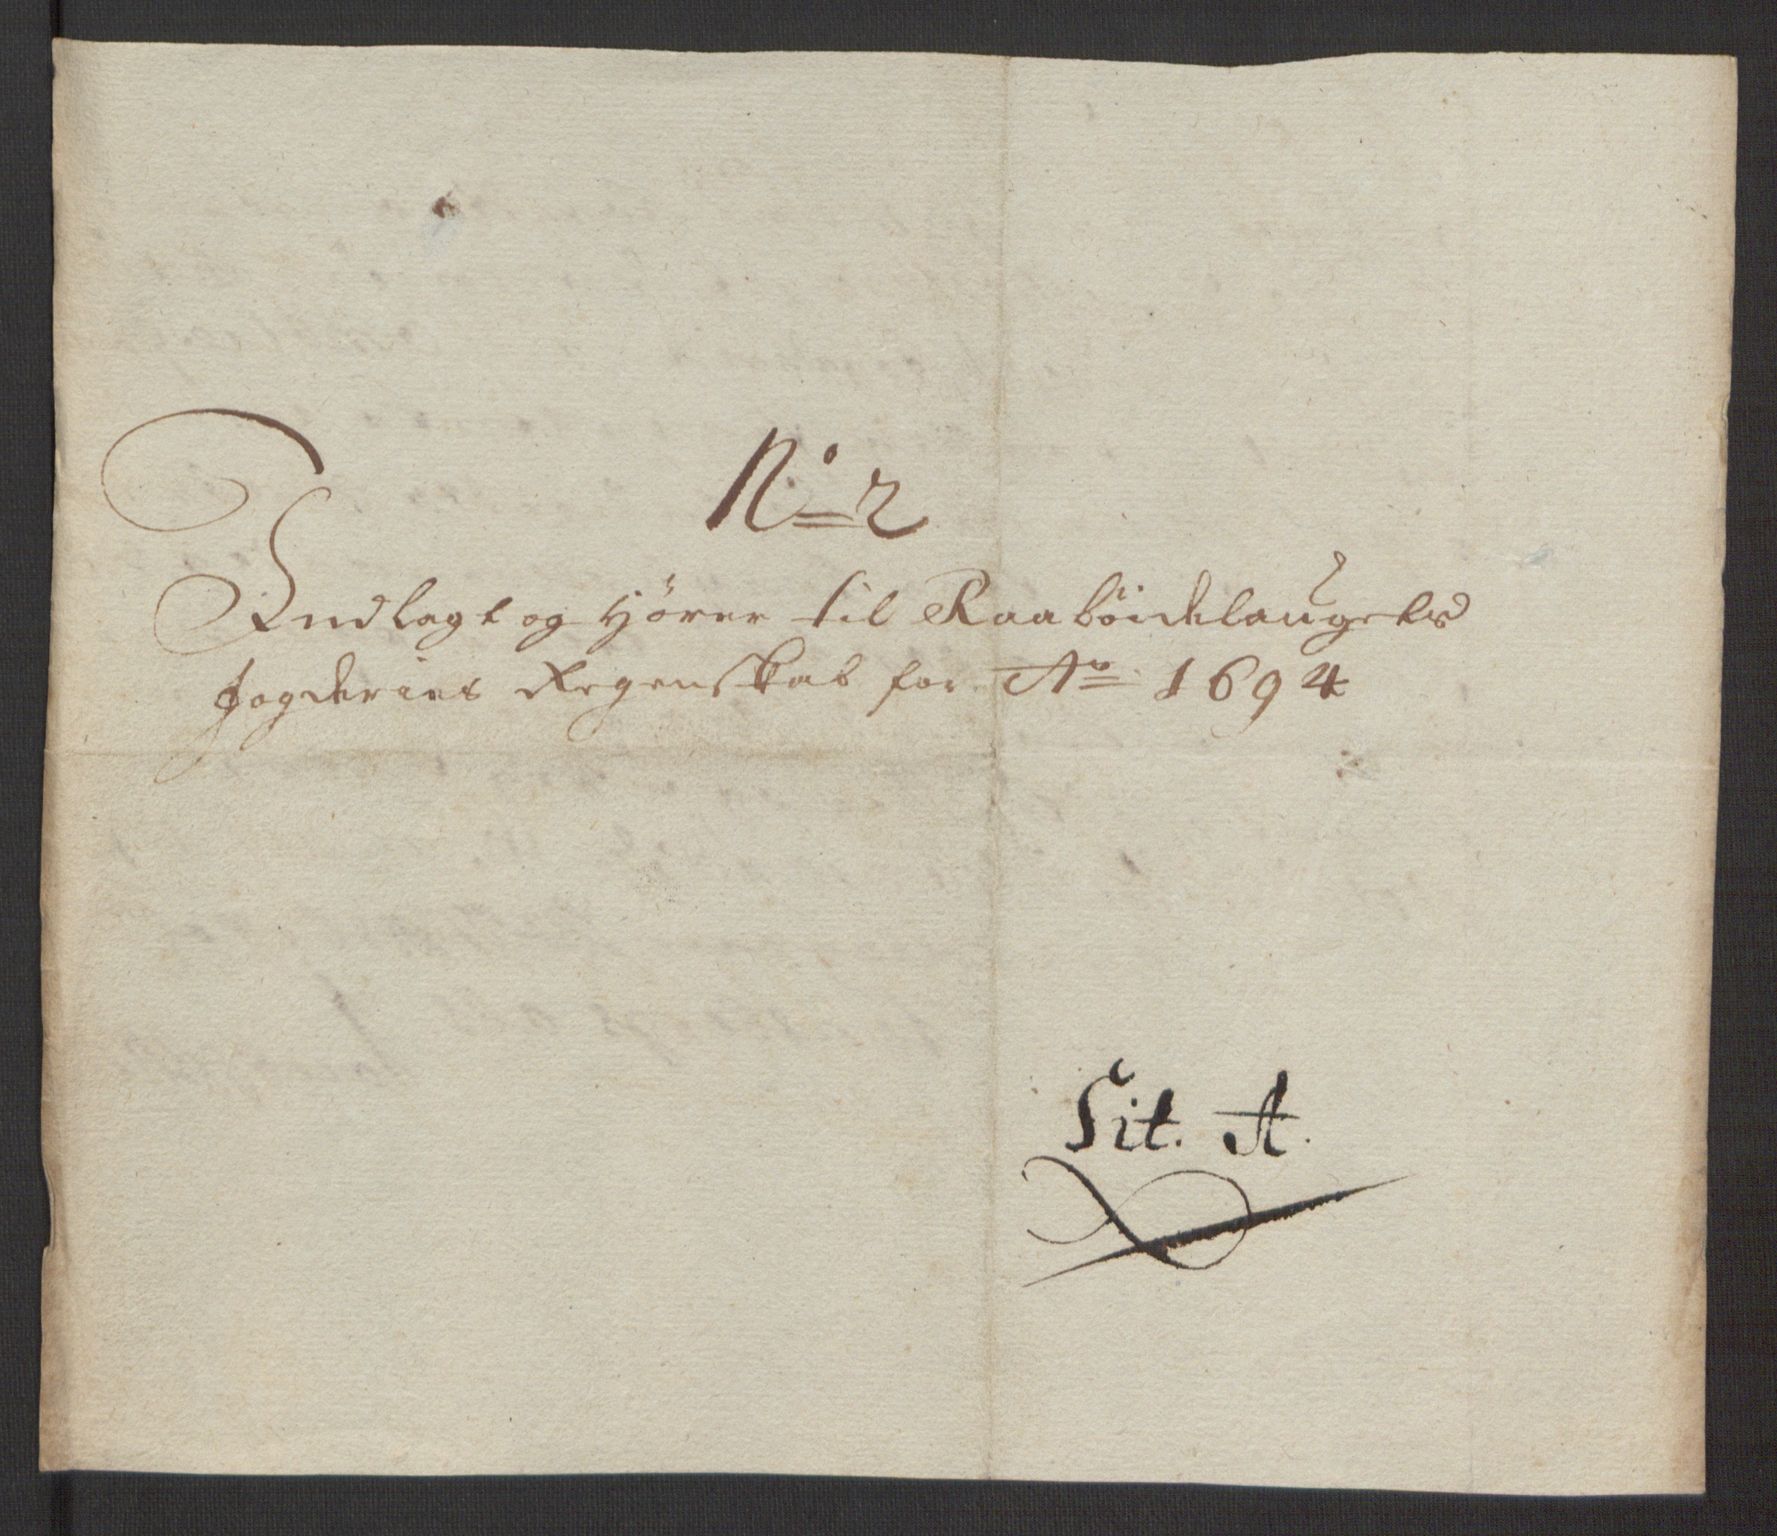 No 2
Indlagt og hörer til Raaböidelaugets
Fogderies Regenskab for Ao 1694
Lit. A.